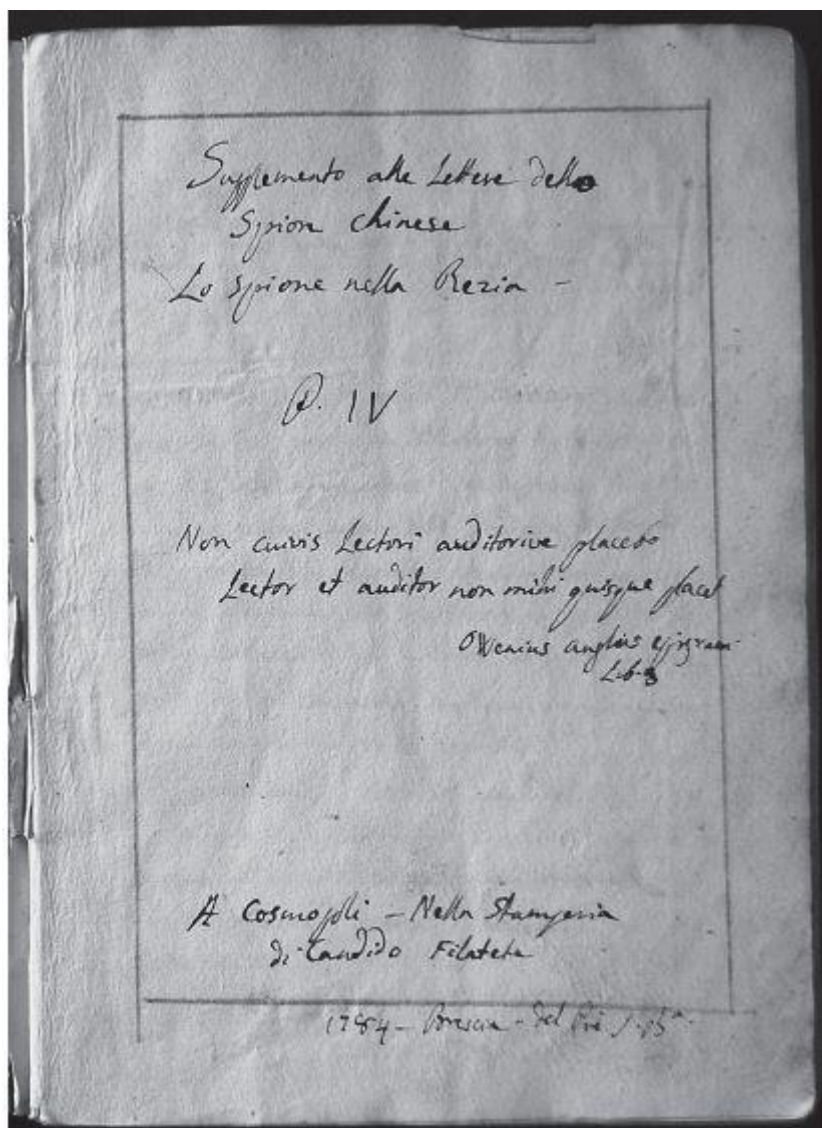 Supplemento alle Lettere dello
Spion chinese
Lo spione nella Rezia -
P. IV
Non cuivis Lectori auditorive placebo
Lector et auditor non mihi quisque placet
Owenius anglus epigram.
Lib. 3
A Cosmopoli - Nella Stamperia
di Candido Filatete
1784 - Brescia - del